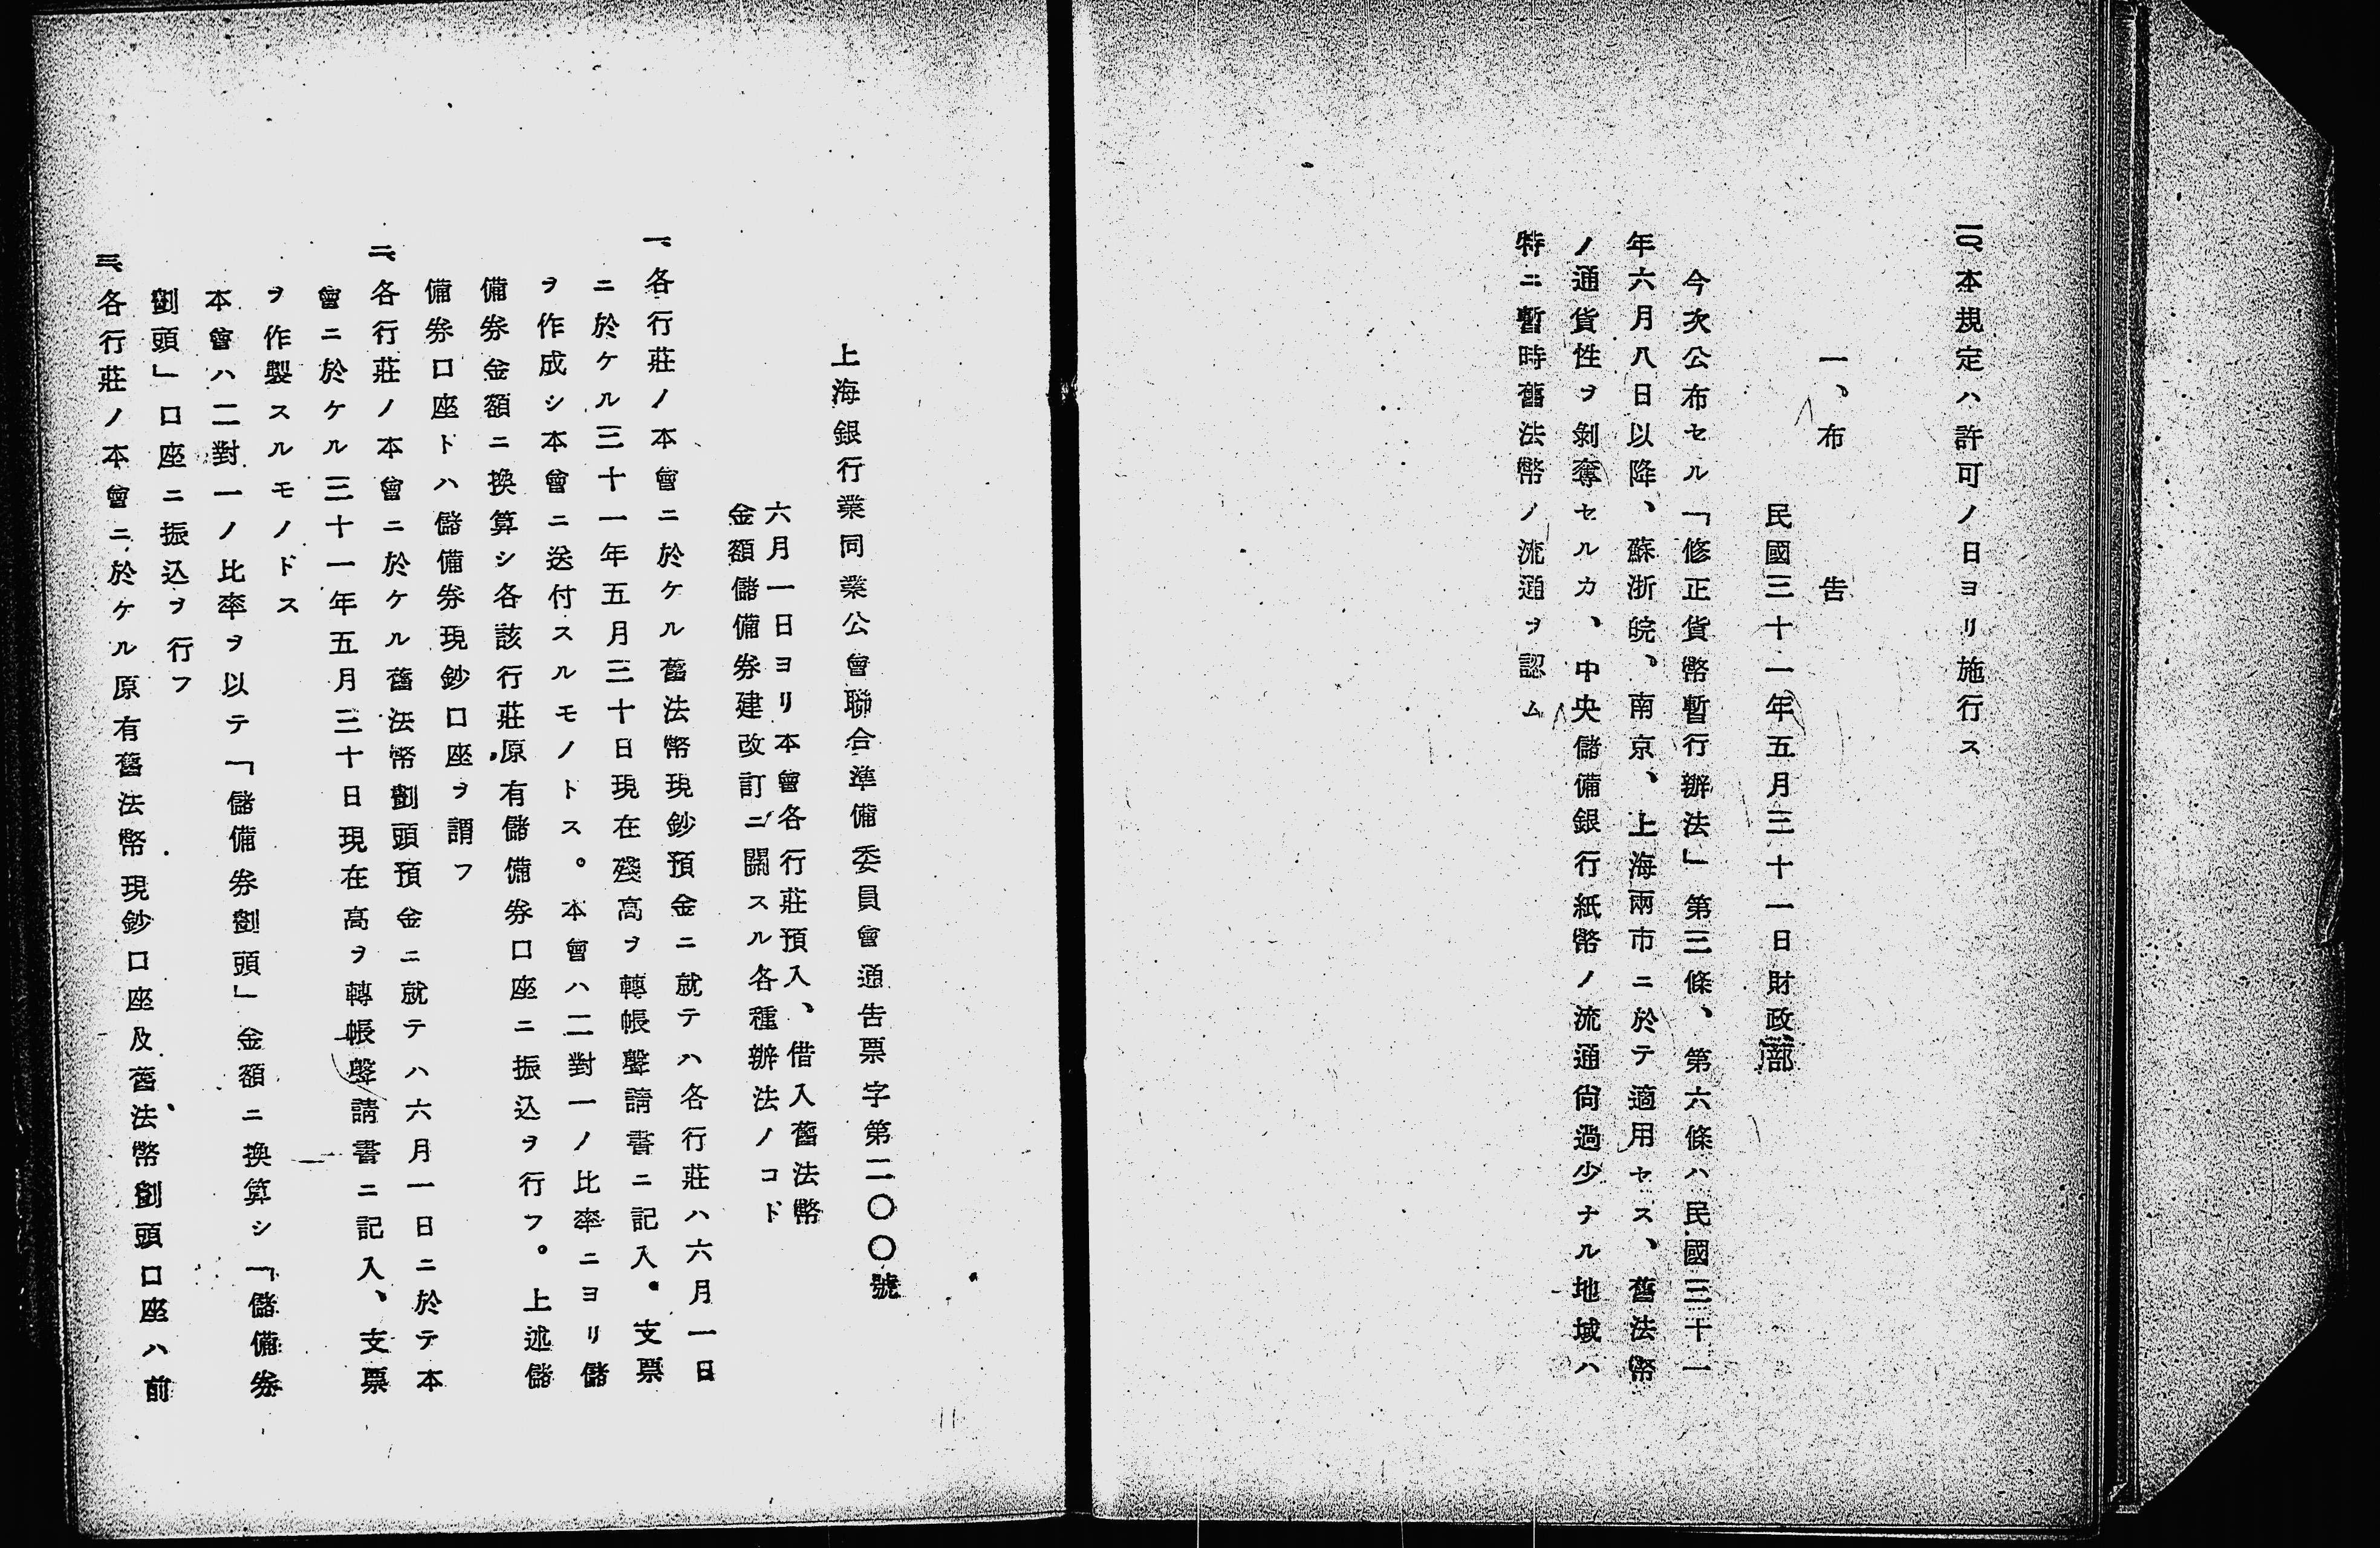 一〇、本規定ハ許可ノ日ヨリ施行ス
一、布告
民國三十一年五月三十一日財政部
今次公布セル「修正貨幣暫行辦法」第三條、第六條ハ民國三十一
年六月八日以降、蘇浙皖、南京、上海兩市ニ於テ適用セス、舊法幣
ノ通貨性ヲ剝奪セルカ、中央儲備銀行紙幣ノ流通尙過少ナル地域ハ
特ニ暫時舊法幣ノ流通ヲ認ム
上海銀行業同業公會聯合準備委員會通告票字第二〇〇號
六月一日ヨリ本會各行莊預入、借入舊法幣
金額儲備券建改訂ニ關スル各種辦法ノコト
一、各行莊ノ本會ニ於ケル舊法幣現鈔預金ニ就テハ各行莊ハ六月一日
ニ於ケル三十一年五月三十日現在殘高ヲ轉帳聲請書ニ記入。支票
ヲ作成シ本會ニ送付スルモノトス。本會ハ二對一ノ比率ニヨリ儲
備券金額ニ換算シ各該行莊原有儲備券口座ニ振込ヲ行フ。上述儲
備券口座トハ儲備券現鈔口座ヲ謂フ
二、各行莊ノ本會ニ於ケル舊法幣劃頭預金ニ就テハ六月一日ニ於テ本
會ニ於ケル三十一年五月三十日現在高ヲ轉帳聲請書ニ記入、支票
ヲ作製スルモノトス
本會ハ二對一ノ比率ヲ以テ「儲備券劃頭」金額ニ換算シ「儲備券
劃頭」口座ニ振込ヲ行フ
三、各行莊ノ本會ニ於ケル原有舊法幣現鈔口座及舊法幣劃頭口座ハ前